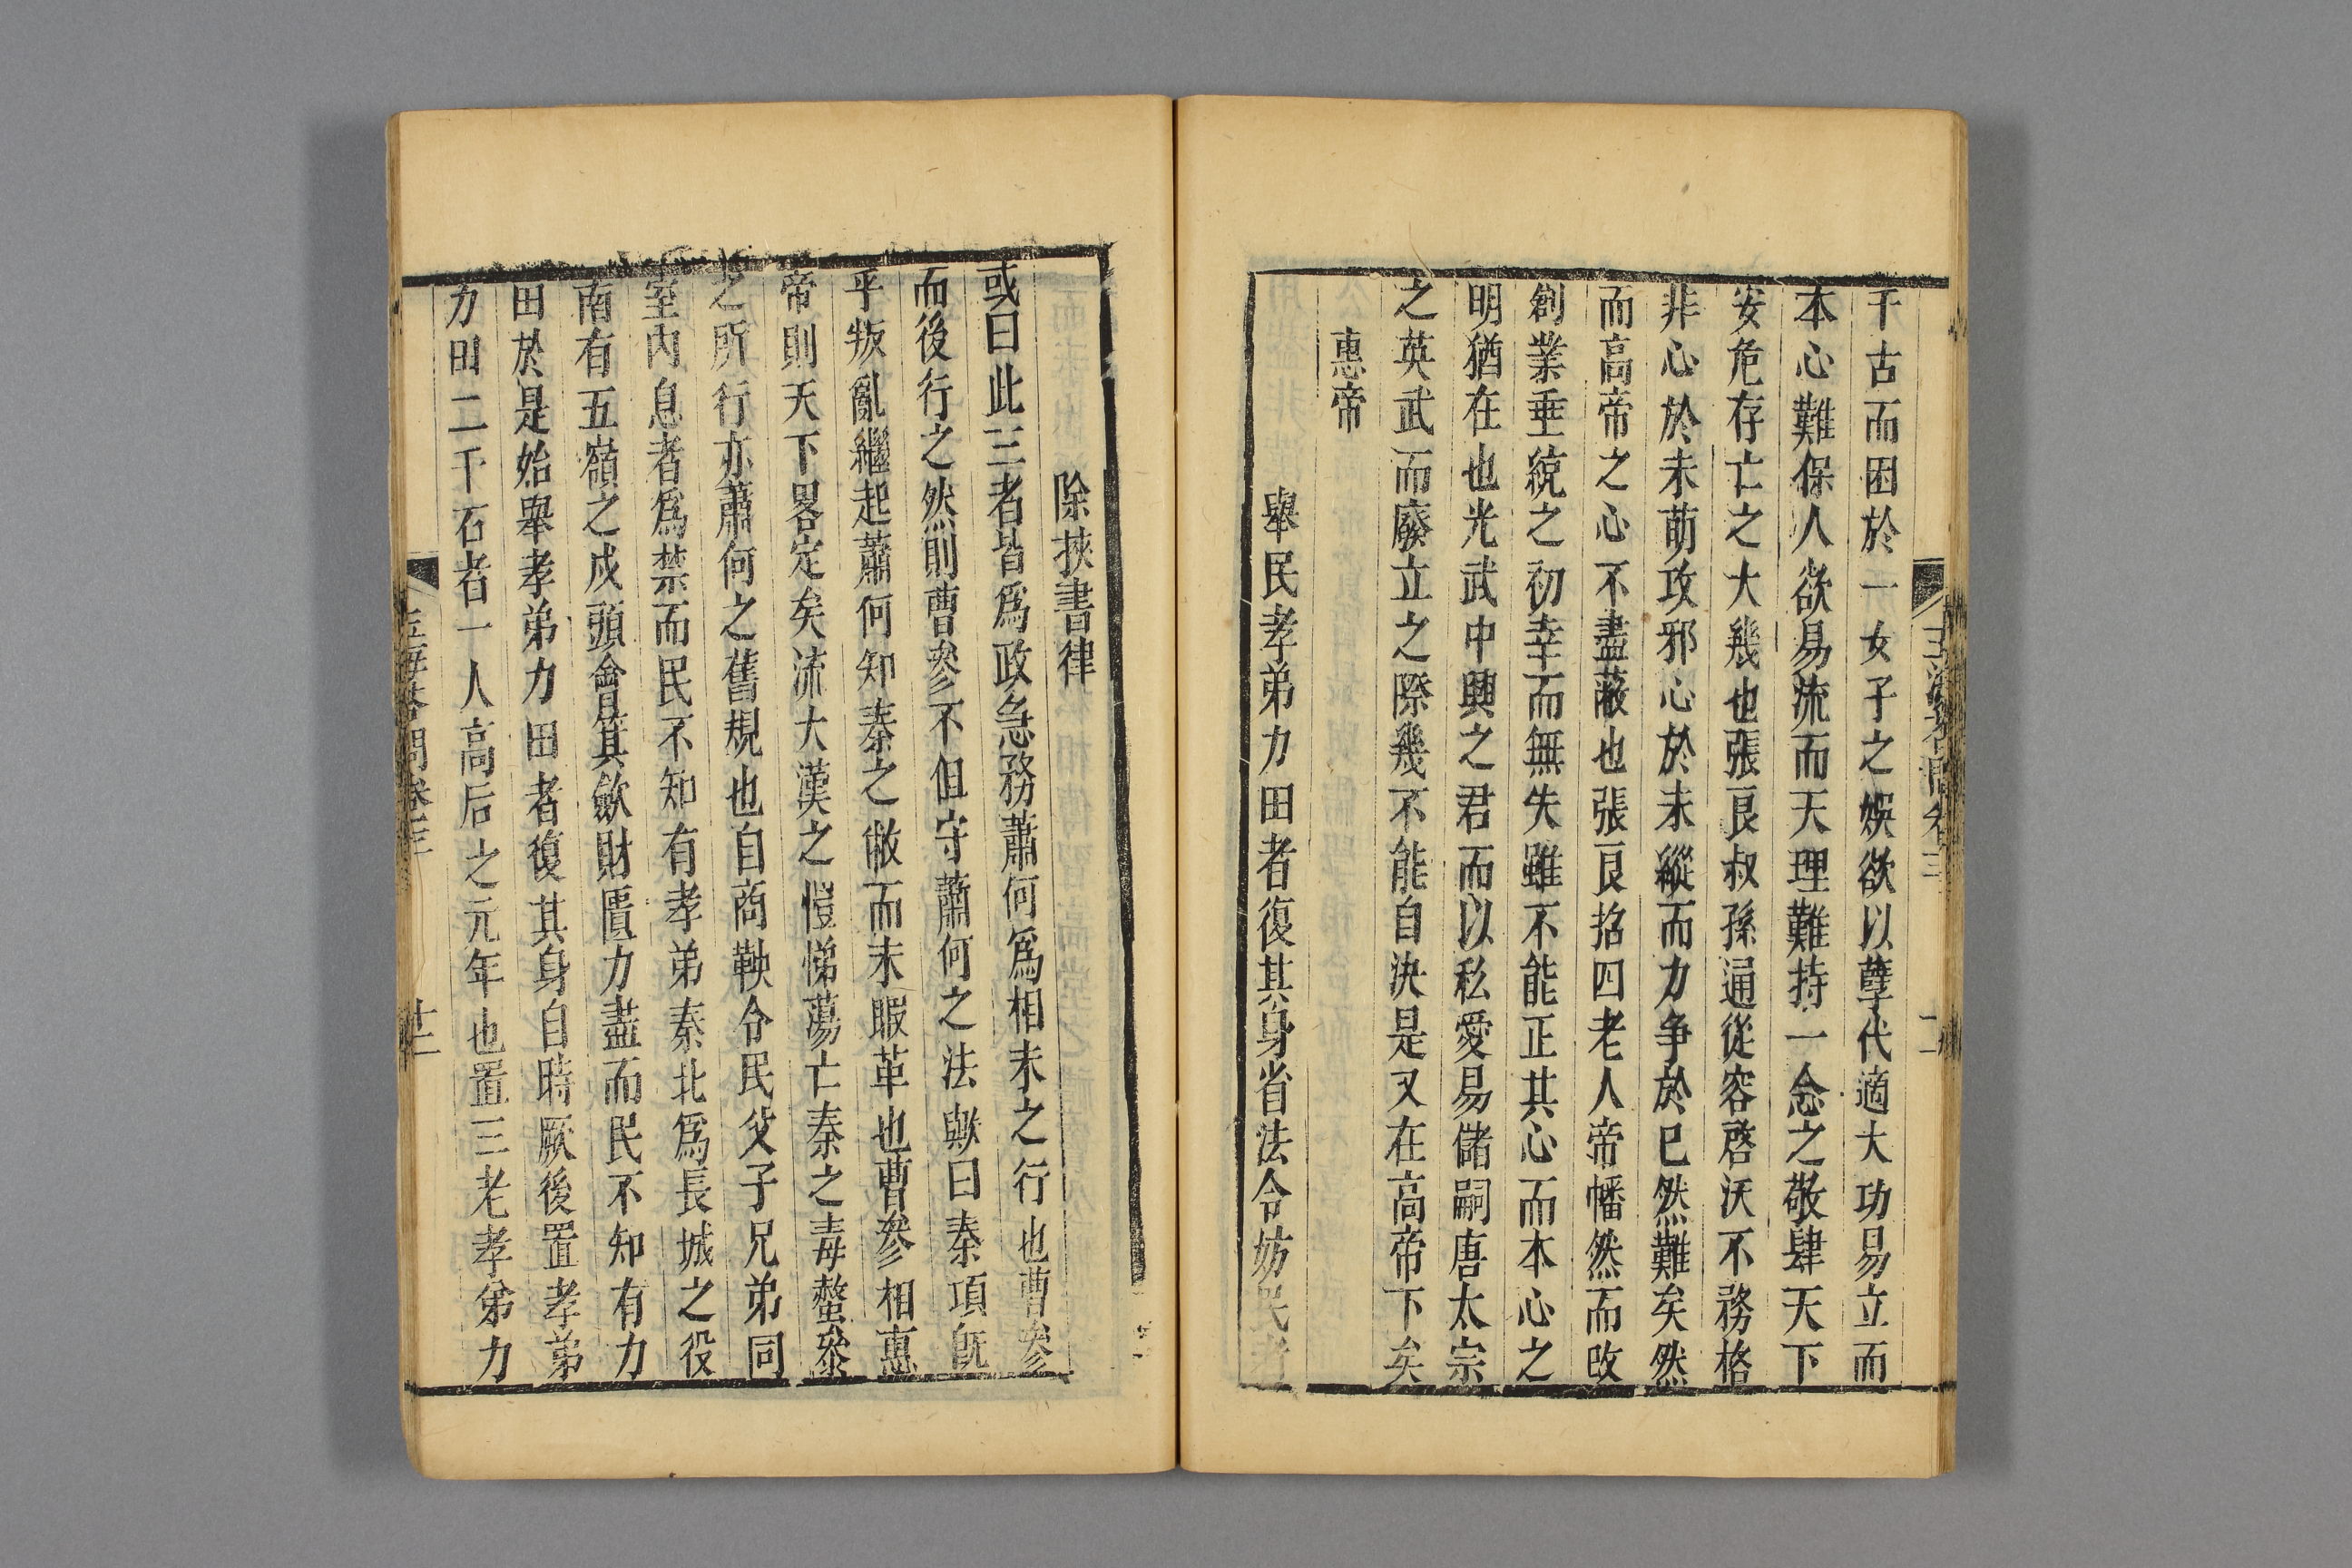 千古而困於一女子之娛欲以孽代適大功易立而
本心難保人欲易流而天理難持一念之敬肆天下
安危存亡之大幾也張良叔孫通從容啓沃不務格
非心於未萌攻邪心於未縱而力争於已然難矣然
而高帝之心不盡蔽也張良招四老人帝幡然而改
創業垂統之初幸而無失雖不能正其心而本心之
明猶在也光武中興之君而以私愛易儲嗣唐太宗
之英武而廢立之際幾不能自決是又在高帝下矣
惠帝
舉民孝弟力田者復其身省法令妨民者
除挾書律
或曰此三者皆爲政急務蕭何爲相未之行也曹參
而後行之然則曹參不但守蕭何之法歟曰秦項旣
平叛亂繼起蕭何知秦之敝而未暇革也曹參相惠
帝則天下畧定矣流大漢之愷悌蕩亡秦之毒螫參
之所行亦蕭何之舊規也自商鞅令民父子兄弟同
室內息者爲禁而民不知有孝弟秦北爲長城之役
南有五嶺之戍頭會箕歛財匱力盡而民不知有力
田於是始舉孝弟力田者復其身自時厥後置孝弟
力田二千石者一人高后之元年也置三老孝弟力
卷三
十二